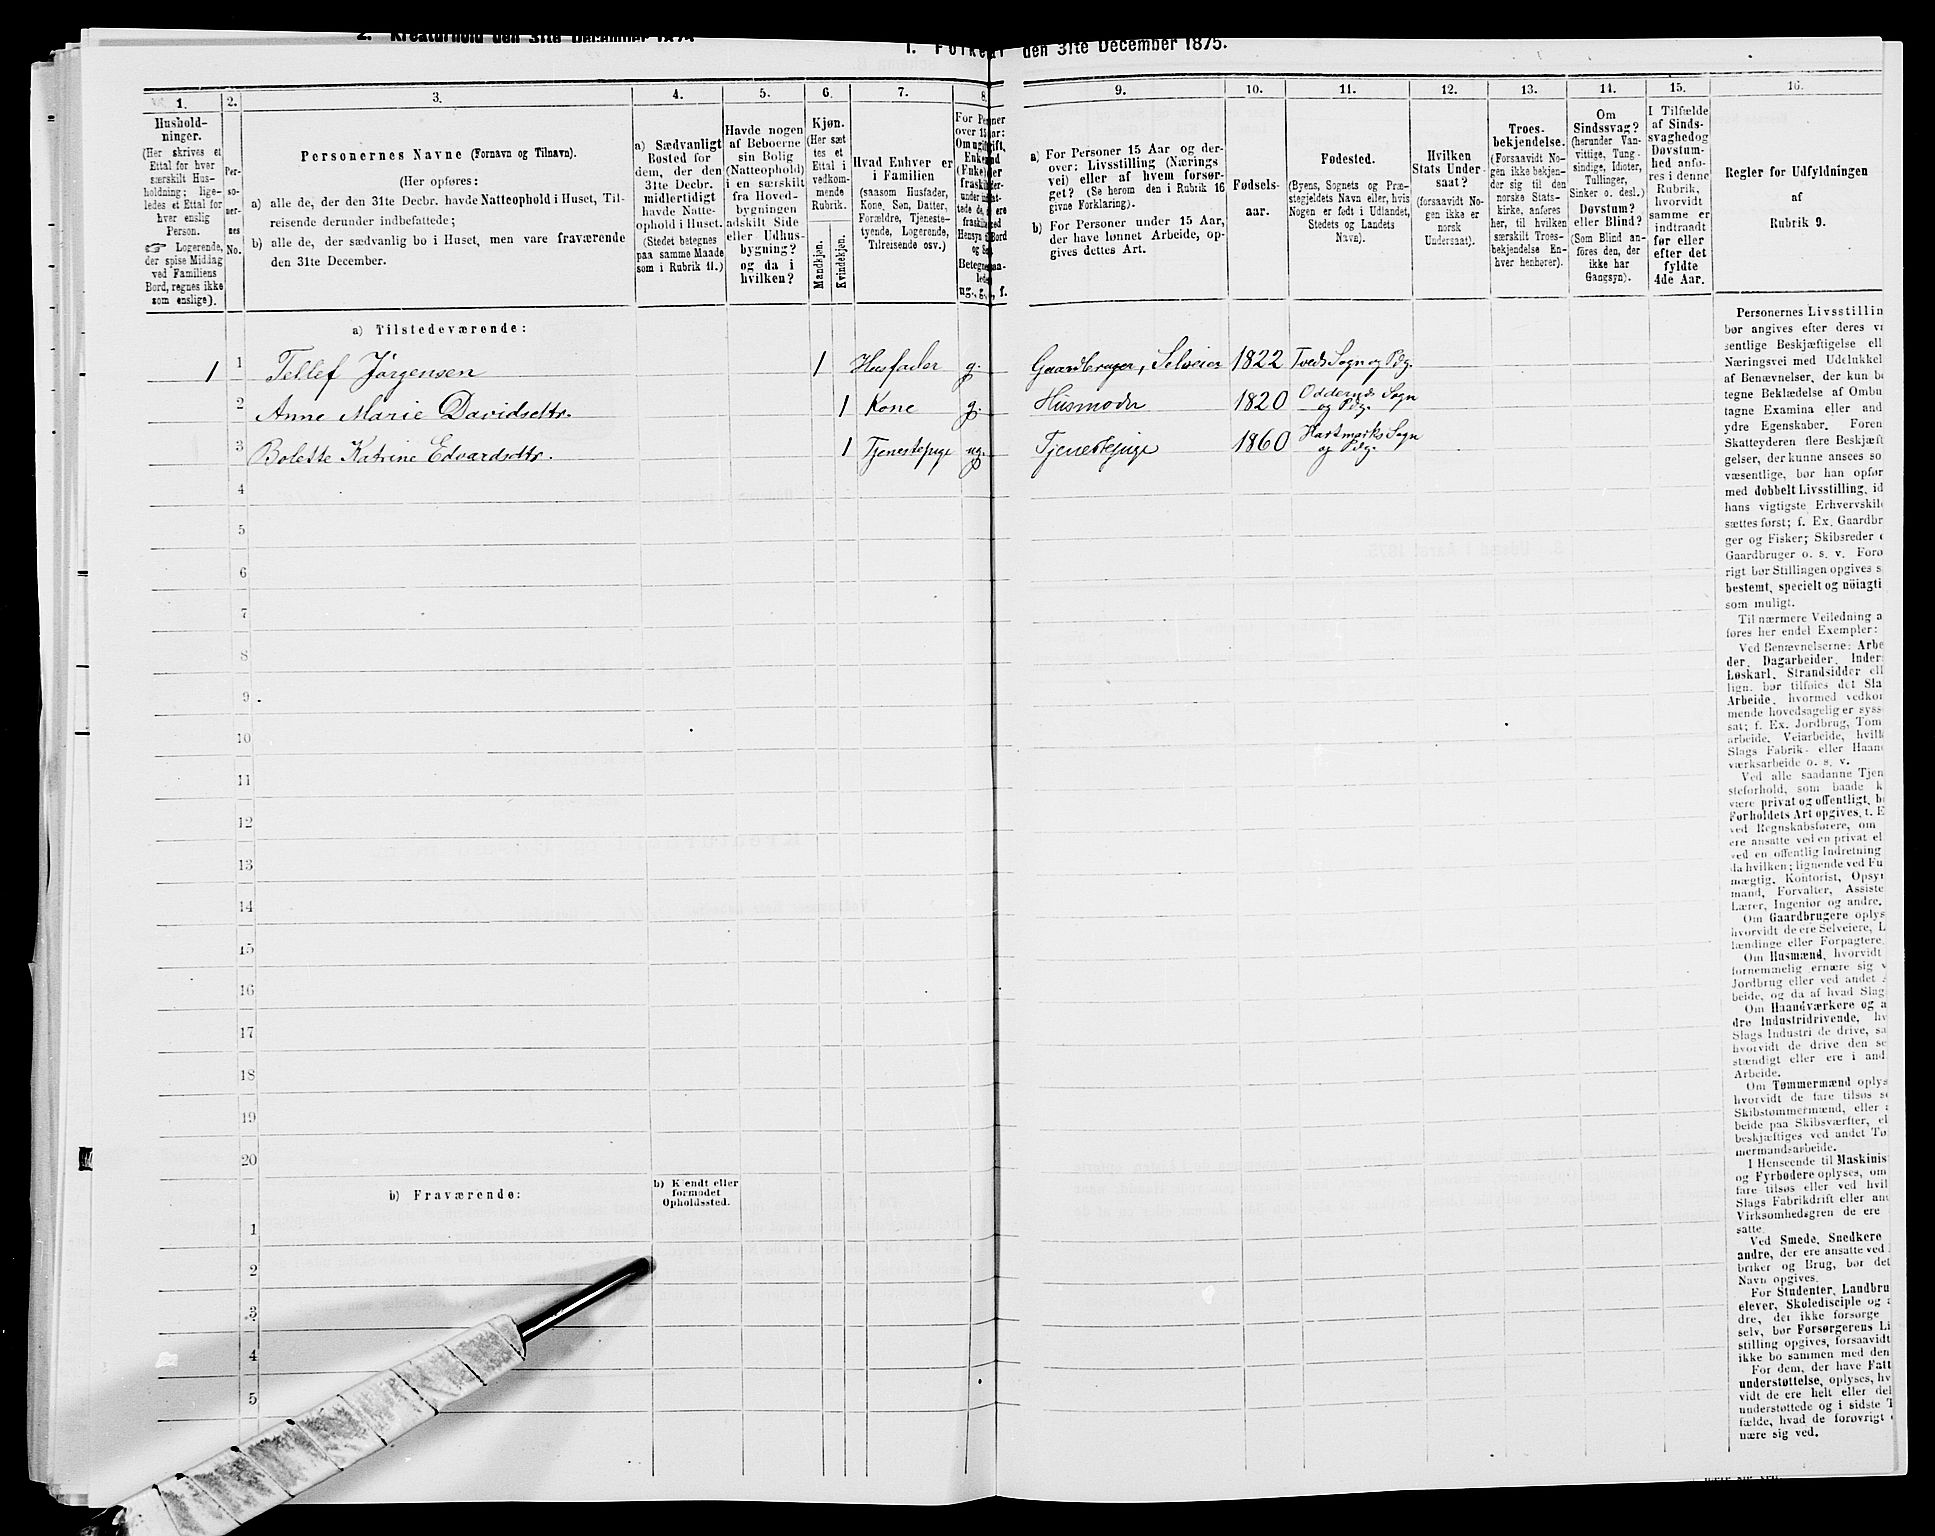 2. Kreaturhold den 31te December 1874
1. Folket den 31te December 1875.
1.
2.
3.
4.
5.
6.
7.
8.
9.
10.
11.
12.
13.
14.
15.
16.
Hushold-
ninger.
(Her skrives et
Ettal for hver
særskilt Hus-
holdning; lige-
ledes et Ettal for
hver enslig
Person.
☞ Logerende,
der spise Middag
ved Familiens
Bord, regnes ikke
som enslige).
Per-
so-
ner-
nes
No.
Personernes Navne (Fornavn og Tilnavn).
(Her opføres:
a) alle de, der den 31te Decbr. havde Natteophold i Huset, Til-
reisende derunder indbefattede;
b) alle de, der sædvanlig bo i Huset, men vare fraværende
den 31te December.
a) Sædvanligt
Bosted for
dem, der den
31te Decbr.
midlertidigt
havde Natte-
ophold i Huset.
(Stedet betegnes
paa samme Maade
som i Rubrik 11.)
Havde nogen
af Beboerne
sin Bolig
(Natteophold)
i en særskilt
fra Hoved-
bygningen
adskilt Side
eller Udhus-
bygning?
og da i
hvilken?
Kjøn.
(Her sæt
tes et
Ettal i
vedkom-
mende
Rubrik.
Mandkjøn.
Kvindekjøn.
Hvad Enhver er
i Familien
(saasom Husfader,
Kone, Søn, Datter,
Forældre, Tjeneste-
tyende, Logerende,
Tilreisende osv.)
a) For Personer 15 Aar og der-
over: Livsstilling (Nærings
vei) eller af hvem forsør-
get? (Se herom den i Rubrik 16
givne Forklaring).
b) For Personer under 15 Aar,
der have lønnet Arbeide, op-
gives dettes Art.
Fødsels-
aar.
Fødested.
(Byens, Sognets og Præ-
stegjeldets Navn eller, hvis
Nogen er født i Udlandet,
Stedets og Landets
Navn).
Hvilken
Stats Under-
saat?
(forsaavidt No-
gen ikke er
norsk
Undersaat).
Troes-
bekjendelse.
(Forsaavidt No-
gen ikke bekjen-
der sig til den
norske Stats-
kirke, anføres
her, til hvilken
særskilt Troes-
bekjendelse En-
hver henhører).
Om
Sindssvag?
(herunder Van-
vittige, Tung-
sindige, Idioter,
Tullinger,
Sinker o. desl.)
Døvstum?
eller Blind?
(Som Blind an-
føres den, der
ikke har
Gangsyn).
I Tilfælde
af Sinds-
svaghed og
Døvstum-
hed anfø-
res i denne
Rubrik,
hvorvidt
samme er
indtraadt
før eller
efter det
fyldte
4de Aar.
Regler for Udfyldningen
af
Rubrik 9.
a) Tilstedeværende:
1 1 Tellef Jørgensen 1 Husfader g. Gaardbruger, Selveier 1822 Tveds Sogn og Pdg.
2 Anne Marie Davidsdtr. 1 Kone g. Husmoder 1820 Oddernæs Sogn
og Pdg.
3 Bolette Katrine Edvardsdtr. 1 Tjenestepige ug. Tjenestepige 1860 Hartmarks Sogn
og Pdg.
4
5
6
7
8
9
10
11
12
13
14
15
16
17
18
19
20
b) Fraværende:
b) Kjendt eller
formodet
Opholdssted.
1
2
3
4
5
Personernes Livsstillin
bør angives efter deres
sentlige Beskjæftigelse
Næringsvei med Udelukkel
af Benævnelser, der kun
tegne Beklædelse af Ombu
tagne Examina eller and
ydre Egenskaber. Foren
Skatteyderen flere Beskjæft
gelser, der kunne ansees so
væsentlige, bør han opfør
med dobbelt Livsstilling, id
hans vigtigste Erhvervskil
sættes først; f. Ex. Gaardbr
ger og Fisker; Skibsreder
Gaardbruger o. s. v. Forø
rigt bør Stillingen opgives
bestemt, specielt og nöiagti
som muligt.
Til nærmere Veiledning
føres her endel Exempler:
Ved Benævnelserne: Arbe
der, Dagarbeider, Inder
Løskarl, Strandsidder
lign. bør tilføies det Sla
Arbeide, hvormed vedkom
mende hovedsagelig er syss
sat; f. Ex. Jordbrug, Tom
arbeide, Veiarbeide, hvil
Slags Fabrik- eller Haan
værksarbeide o. s. v.
Ved alle saadanne Tjen
steforhold, som baade
være privat og offentligt,
Forholdets Art opgives, t. E
ved Regnskabsførere, om
ere ansatte ved en privat
ved en offentlig Indretning
da hvilken; lignende ved Fu
mægtig, Kontorist, Opsyn
mand, Forvalter, Assiste
Lærer, Ingeniør og andre.
Om Gaardbrugere oplys
hvorvidt de ere Selveiere, L
lændinge eller Forpagtere.
Om Husmænd, hvorvidt
fornemmelig ernære sig
Jordbrug eller ved andet
beide, og da af hvad Slag
Om Haandværkere og
dre Industridrivende,
Slags Industri de drive,
hvorvidt de drive den
stændigt eller ere i and
Arbeide.
Om Tømmermænd oplys
hvorvidt de fare tilsøs
Skibstømmermænd, eller
beide paa Skibsværfter,
beskjæftiges ved andet Tø
mermandsarbeide.
I Henseende til Maskinis
og Fyrbødere oplyses, om
fare tilsøs eller ved hvil
Slags Fabrikdrift eller
Virksomhedsgren de ere
satte.
Ved Smede, Snedkere
andre, der ere ansatte ved
briker og Brug, bør det
Navn opgives.
For Studenter, Landbru
elever, Skoledisciple og
dre, der ikke forsørge
selv, bør Forsørgerens Li
stilling opgives, forsaavidt
ikke bo sammen med den
For dem, der have Fatt
understøttelse, oplyses,
vidt de ere helt eller del
understøttede og i sidste
fælde, hvad de forøvrigt
nære sig ved.